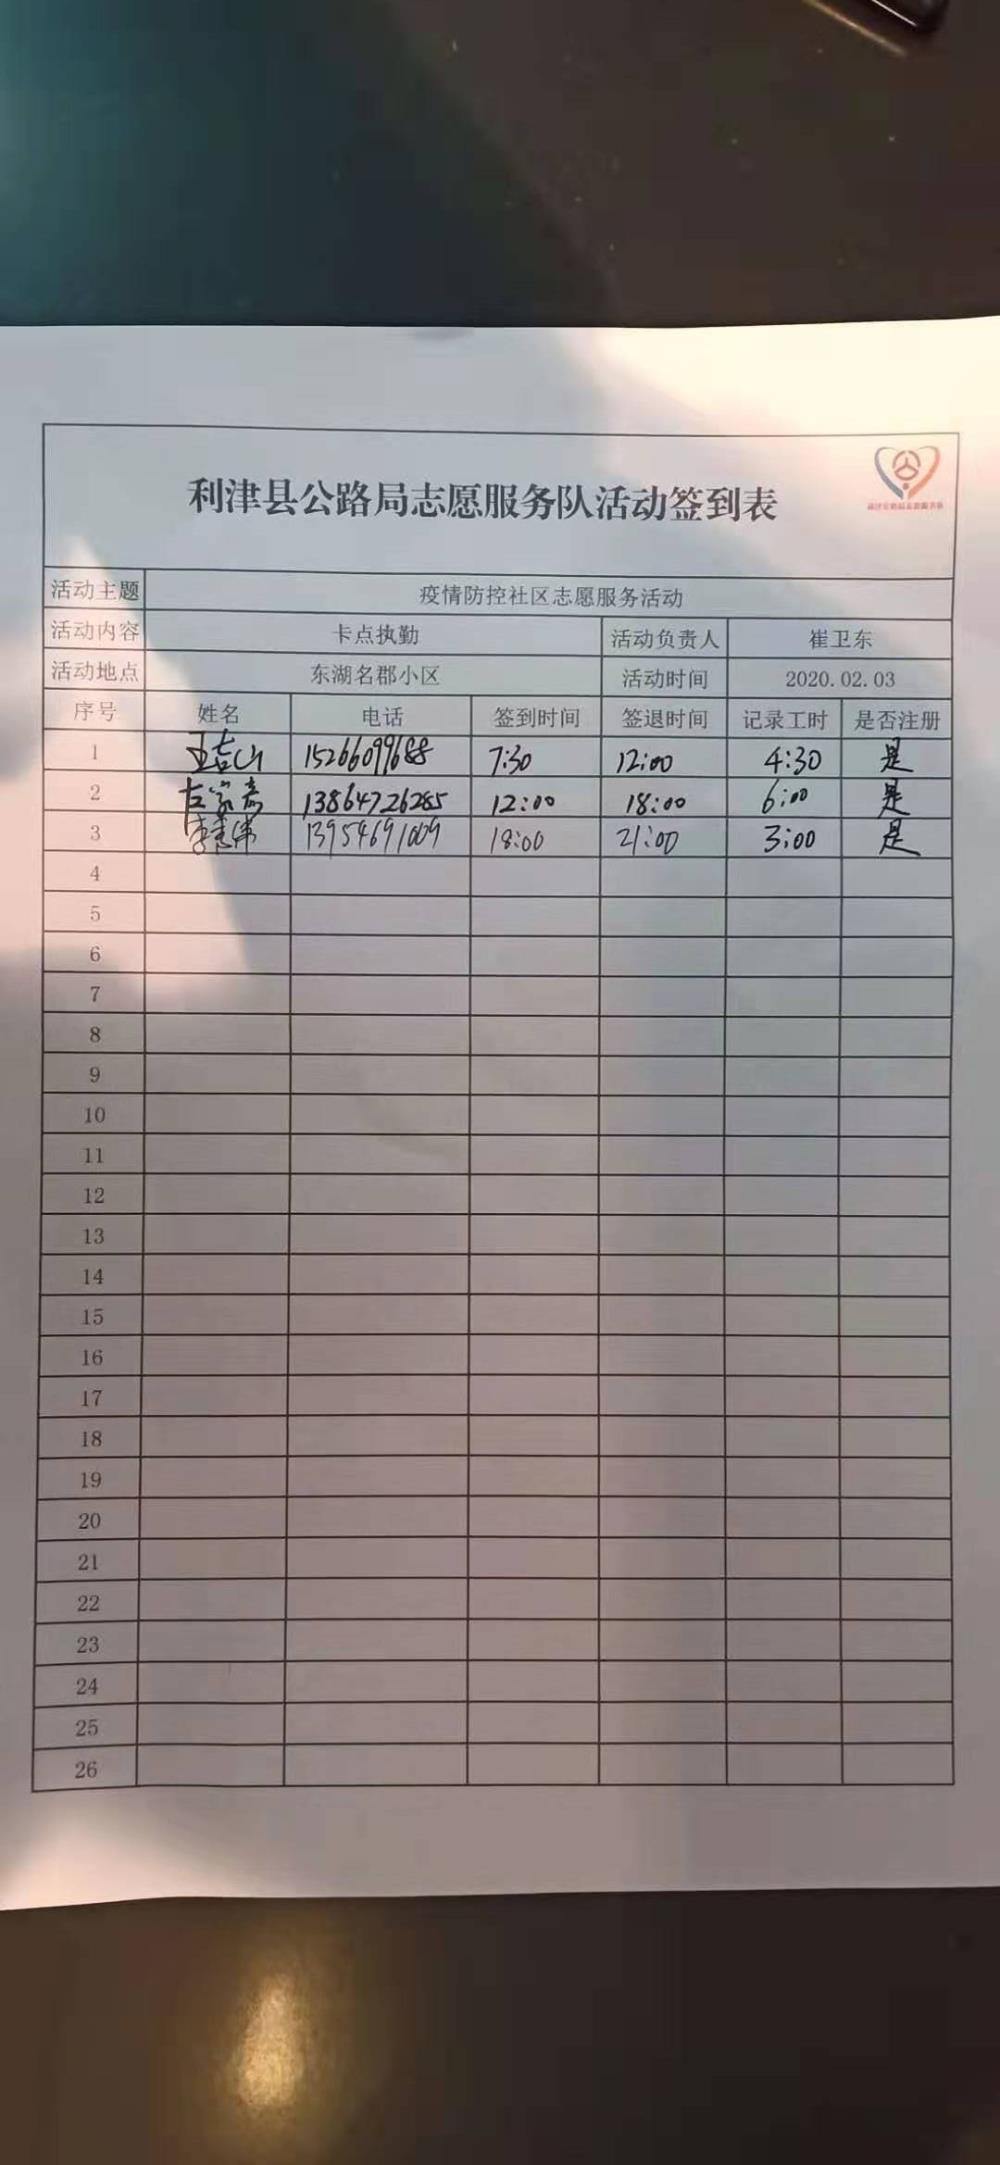 利津县公路局志愿服务队活动签到表
活动主题 疫情防控社区志愿服务活动
活动内容 卡点执勤 活动负责人 崔卫东
活动地点 东湖名郡小区 活动时间 2020.02.03
序号 姓名 电话 签到时间 签退时间 记录工时 是否注册
1 15266099688 7:30 12:00 4:30 是
2 13864726285 12:00 18:00 6:00 是
3 13954691009 18:00 21:00 3:00 是
4
5
6
7
8
9
10
11
12
13
14
15
16
17
18
19
20
21
22
23
24
25
26